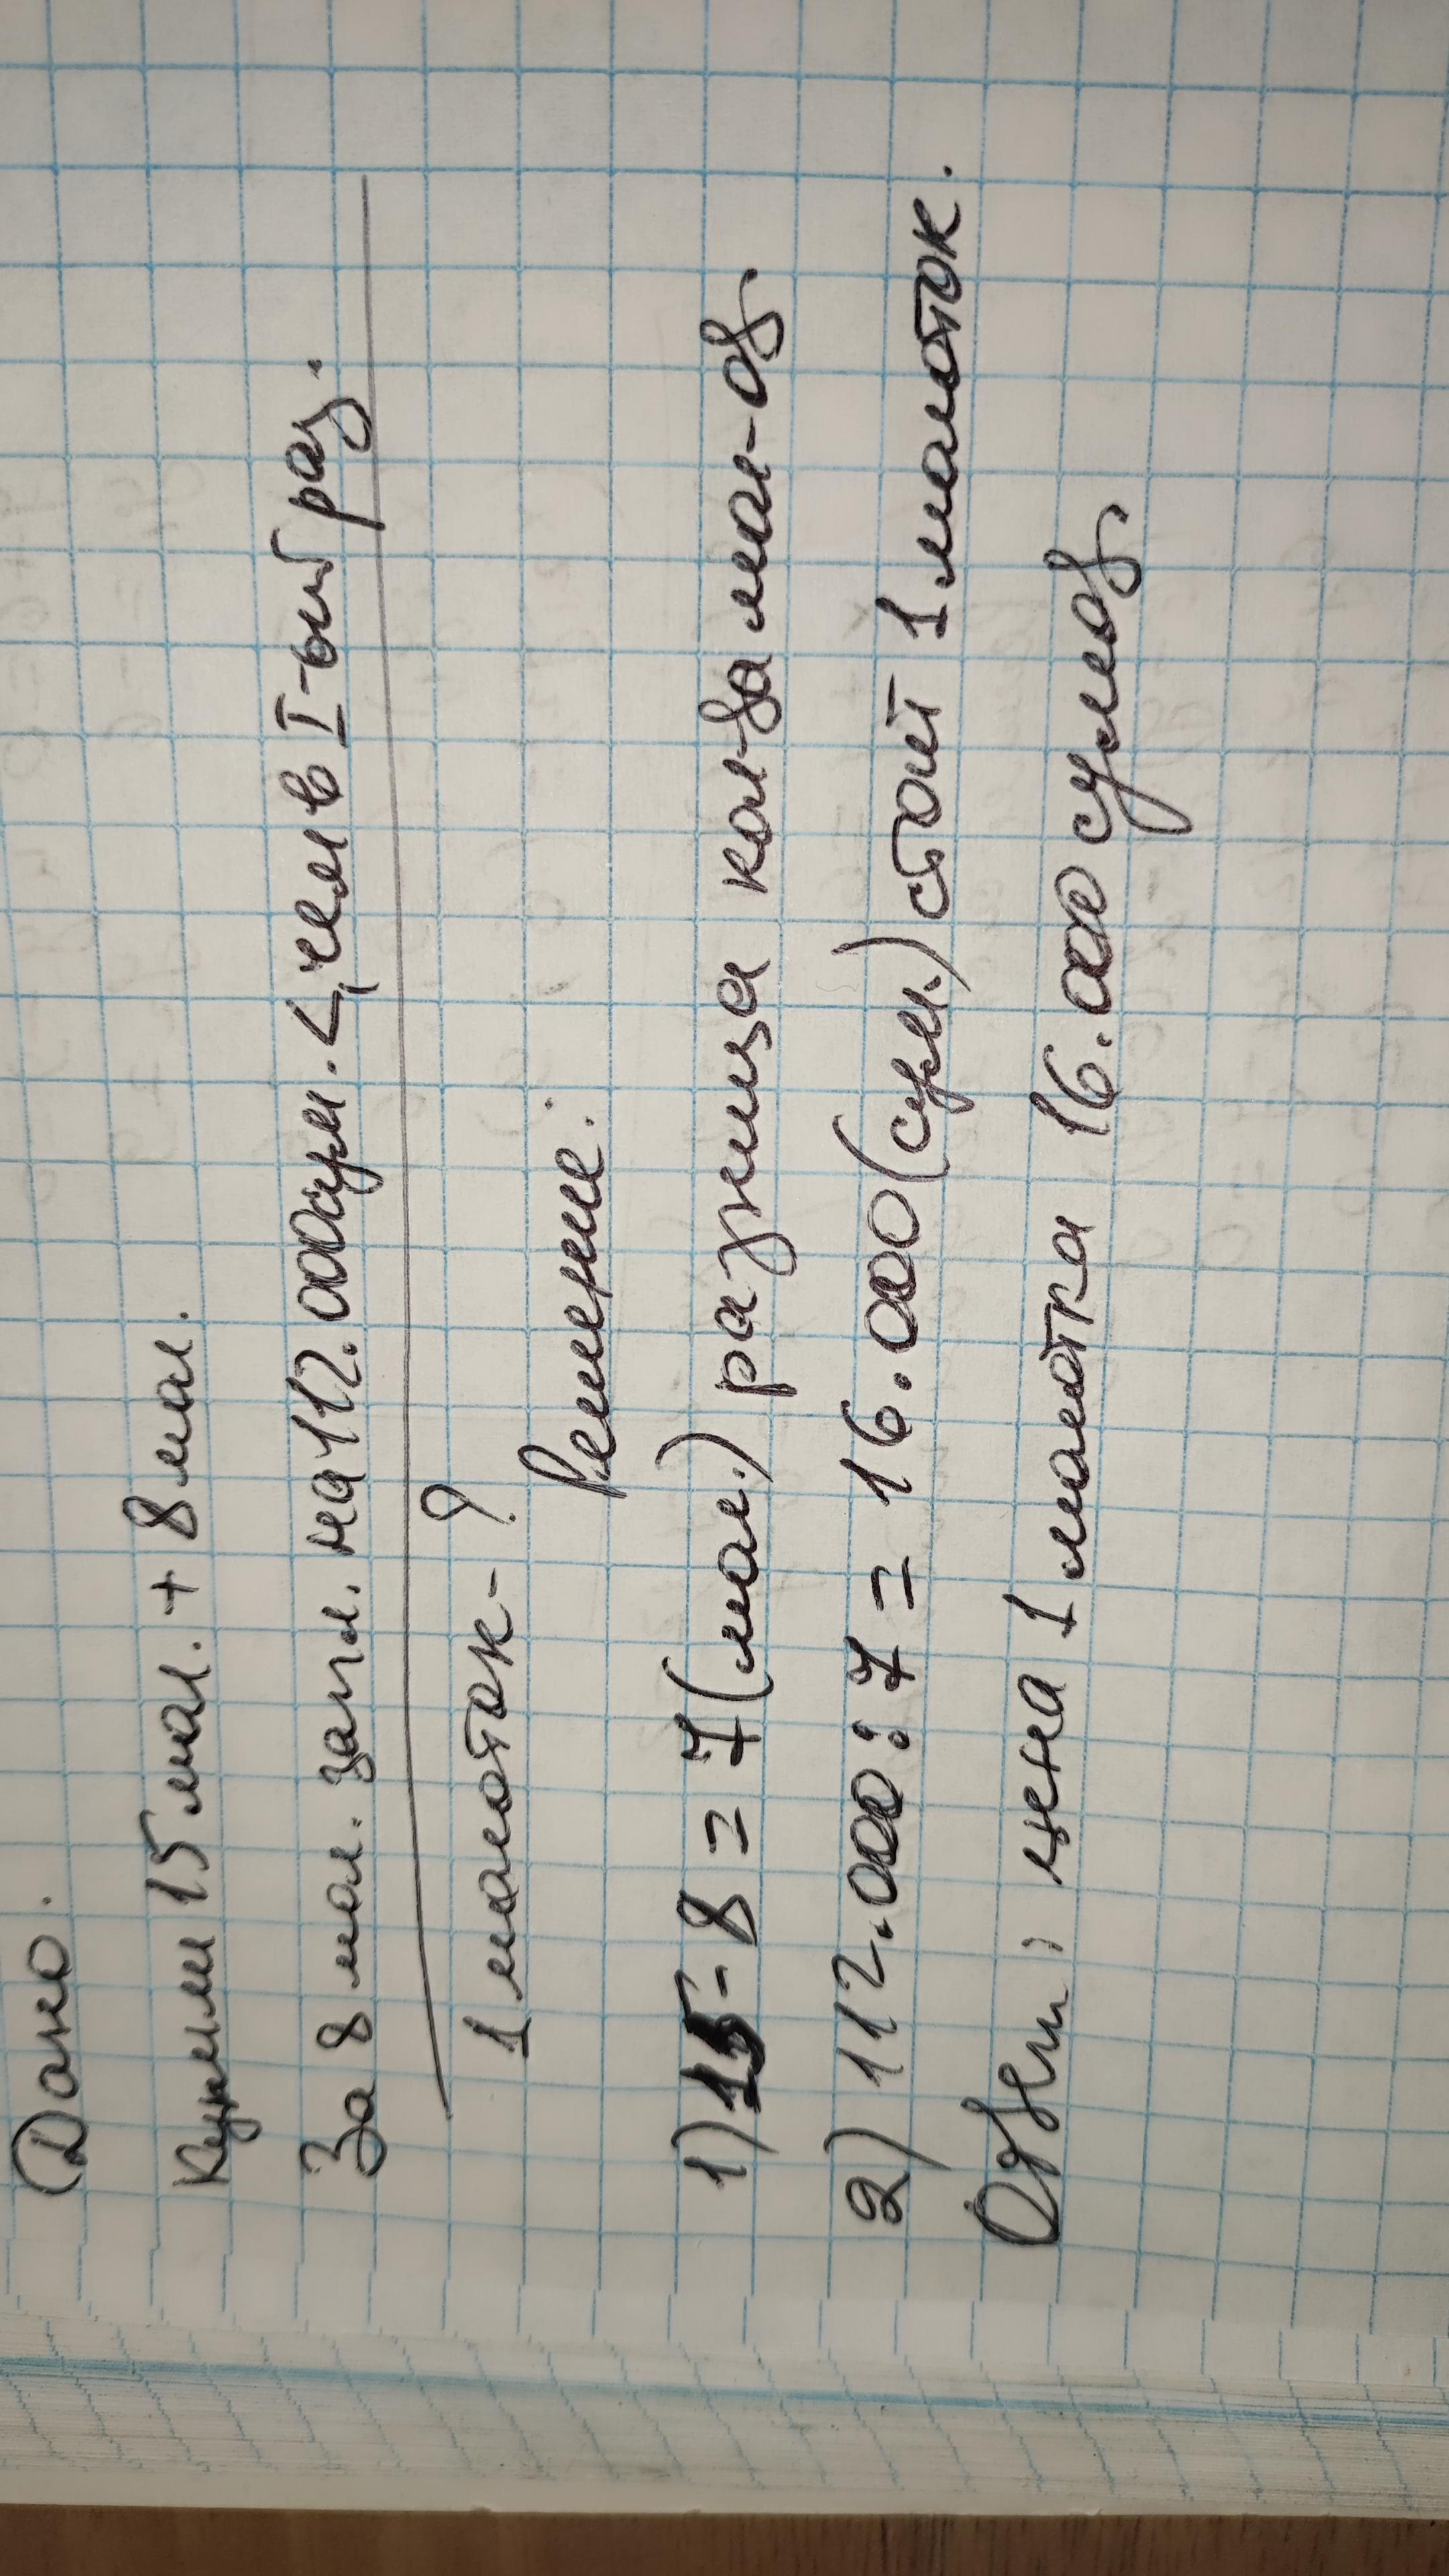 Дано.
Купили 15 мол. + 8 мол.
За 8 мол. запл. на 112.000сум. <, чем в I-ый раз.
1 молоток - ?
Решение:
1) 15 - 8 = 7 (мол.) разница кол-ва мол-ов
2) 112.000 : 7 = 16.000 (сум.) стоит 1 молоток.
Ответ: цена 1 молотка 16.000 сумов